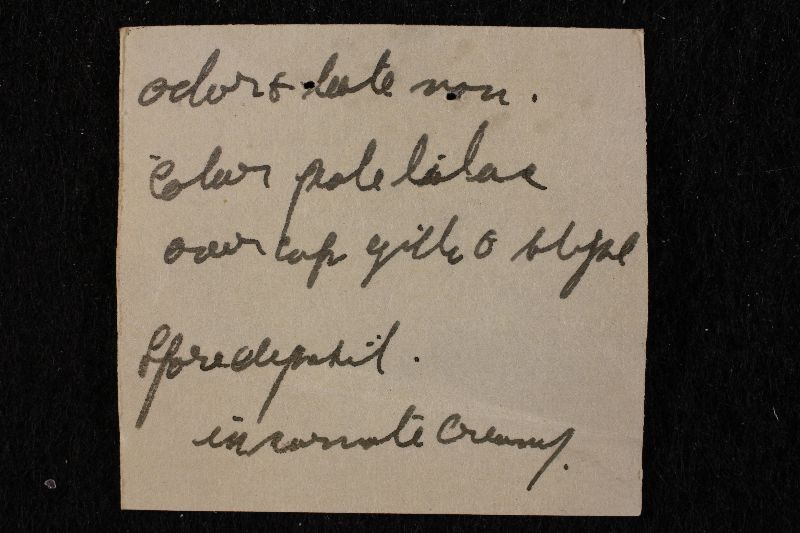 odor & taste non.
Color pale lilac
over cap gills & stipe
Spore deposit.
incarnate creamy.